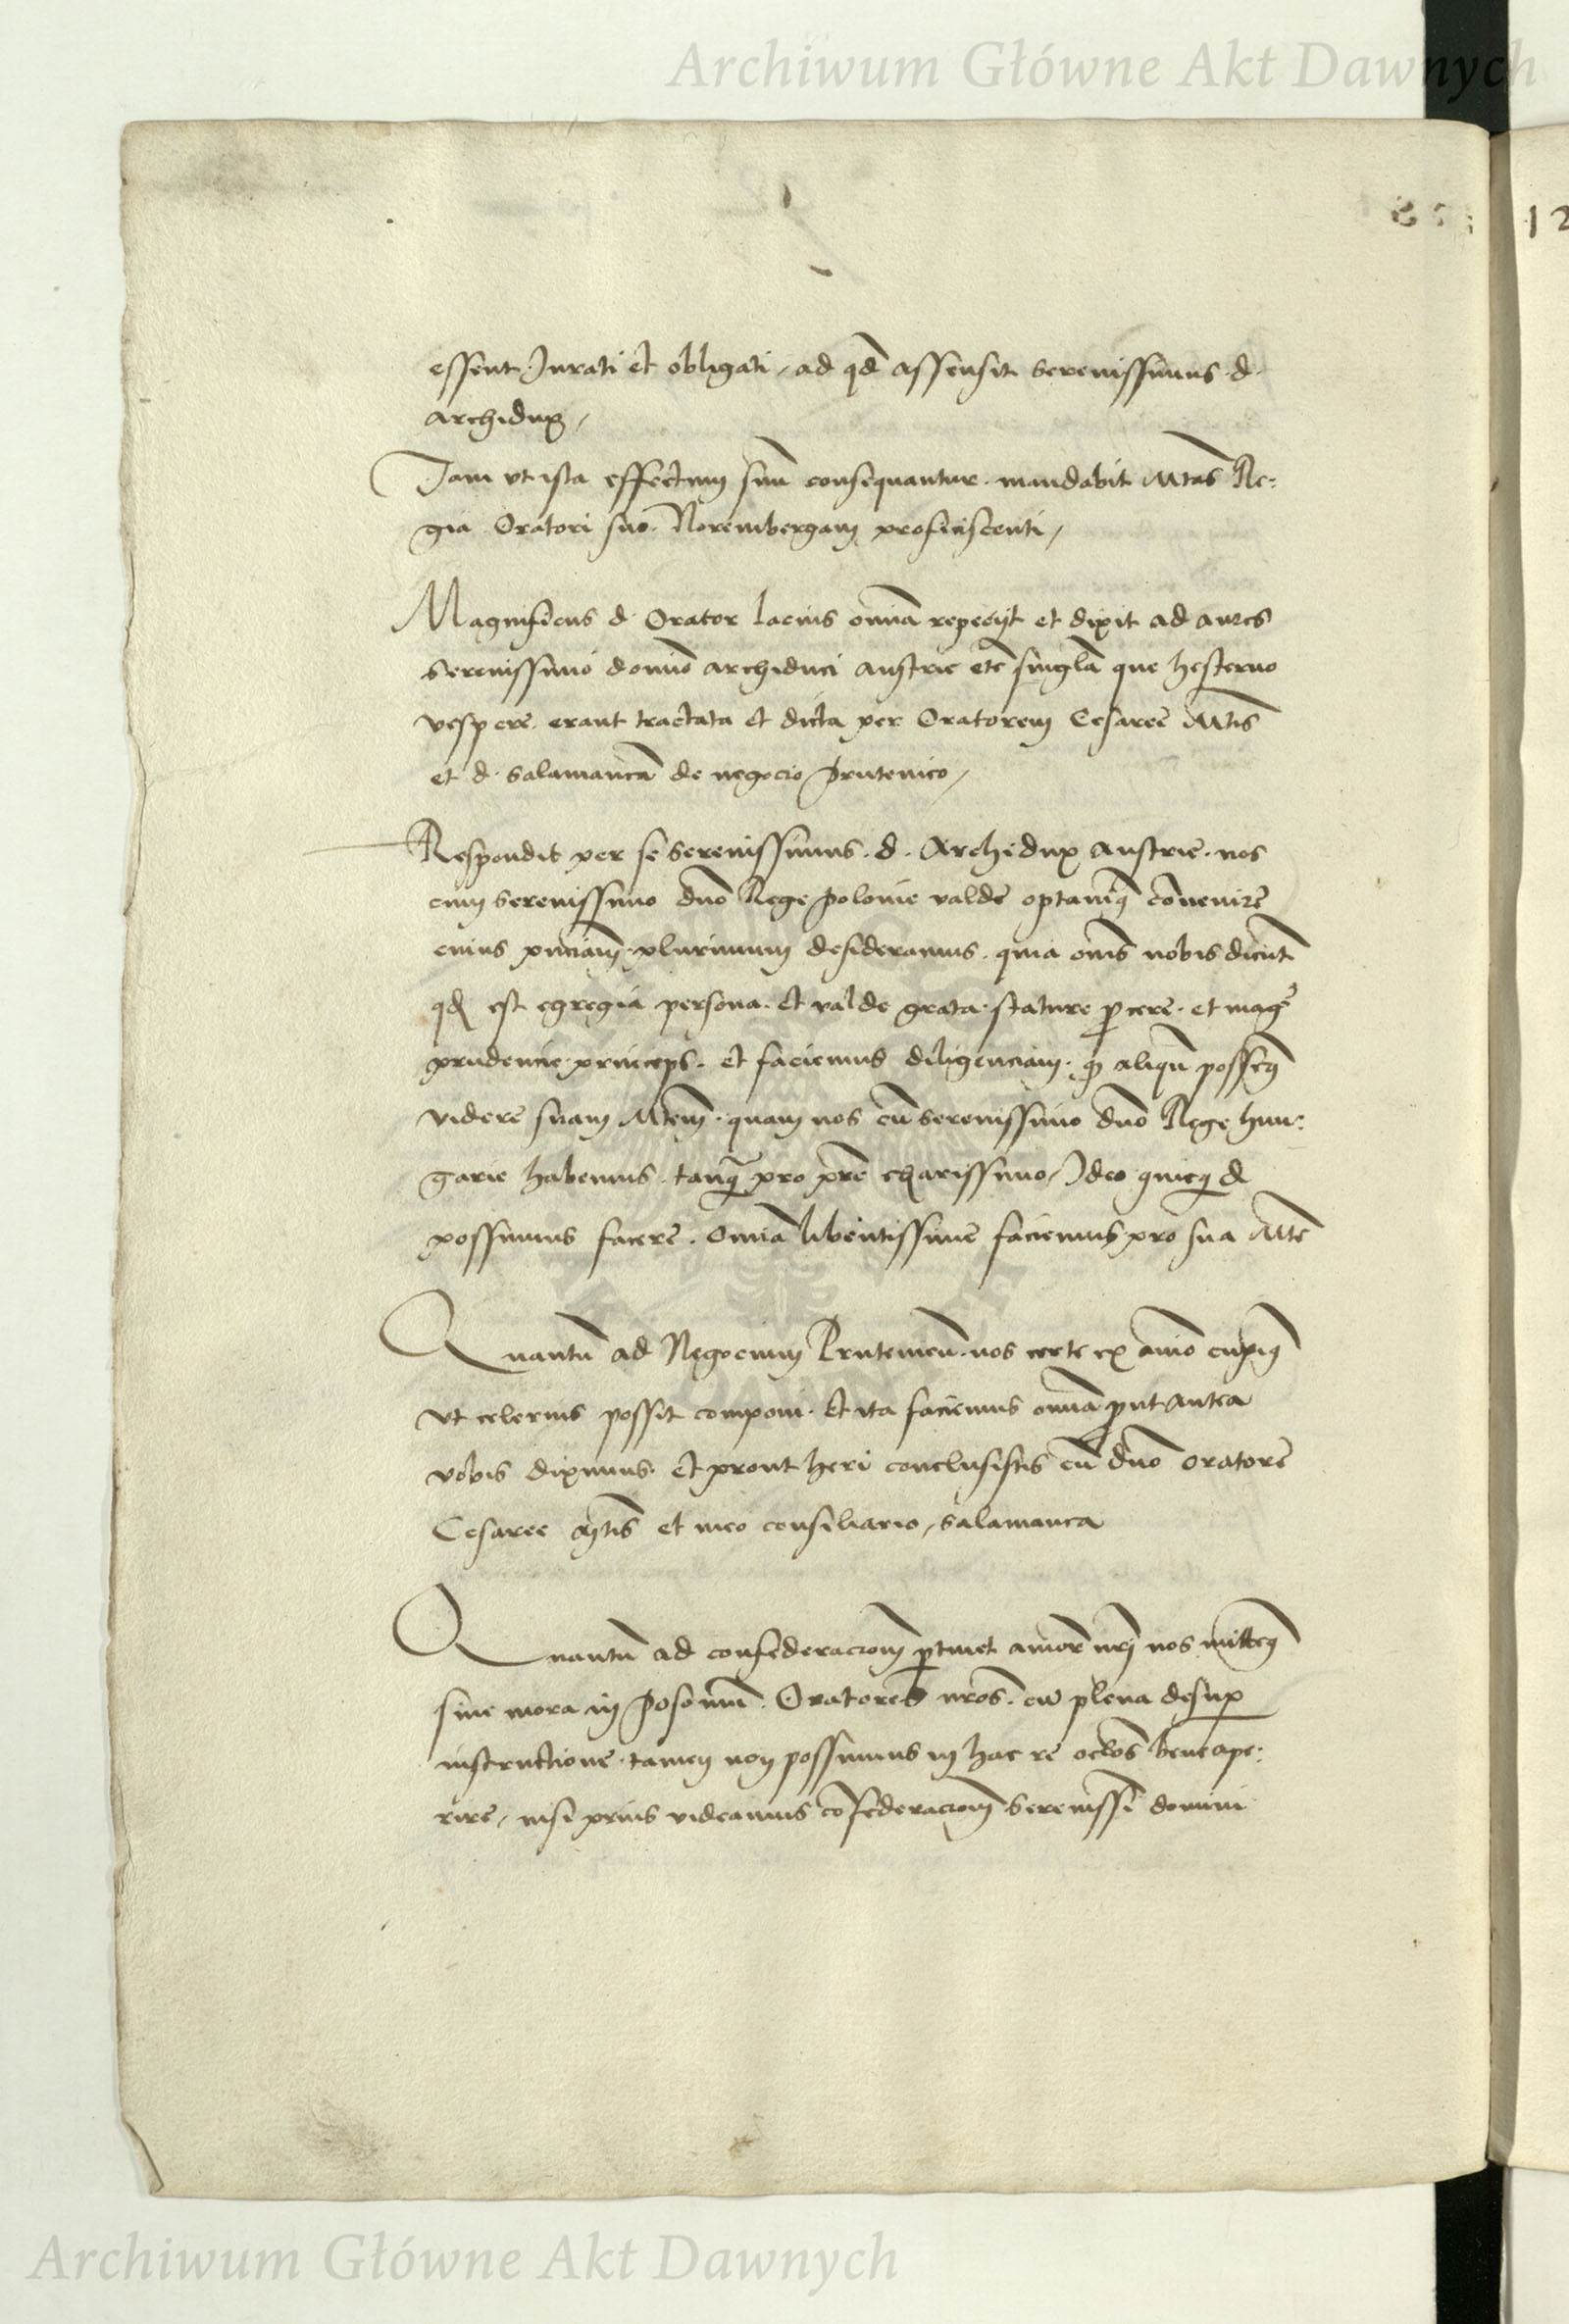 Archiwum Główne Akt Dawnych
12
essent Jurati et obligati, ad qd assensit serenissimus d.
archidux,
Jam vt ista effectum suu consequantur. mandabit Mtas Re:
gia Oratori suo Norembergam proficiscenti,
Magnificus d. Orator lacius omnia repeciyt et dixit ad aures
serenissimo domino archiduci austrie etc singla que hesterno
vespere erant tractata et dicta per Oratorem Cesaree Mtis
et d. Salamanca de negocio prutenico,
Respondit per se serenissimus. d. Archidux austrie. nos
cum serenissimo dno Rege polonie valde optamq convenire
cuius pnciam plurimum desideramus. quia oms nobis dicut
qd est egregia persona. et valde grata. stature pcere. et mage
prudencie princeps. et faciemus diligenciam. qp aliqn possemq
videre suam Mtem. quam nos cu serenissimo dno Rege hun:
garie habemus. tanq pro pre charissimo, Ideo quicqd
possumus facere. omnia libentissime faciemus pro sua Mte
Quantu ad Negocium Prutenicu. nos certe ex aimo cupimq
vt celerius possit componi. Et ita faciemus omnia put antea
vobis diximus. et prout heri conclusistis cu dno oratore
Cesaree Mtis et meo consiliario, Salamanca
Quantu ad confederacionem ptinet amore nri nos mittemq
sine mora in Posonium. Oratores nros. cu plena desup
instructione. tamen non possumus in hac re oclos bene ape:
rire, nisi prius videamus cofederacionem serenissi domini
Archiwum Główne Akt Dawnych